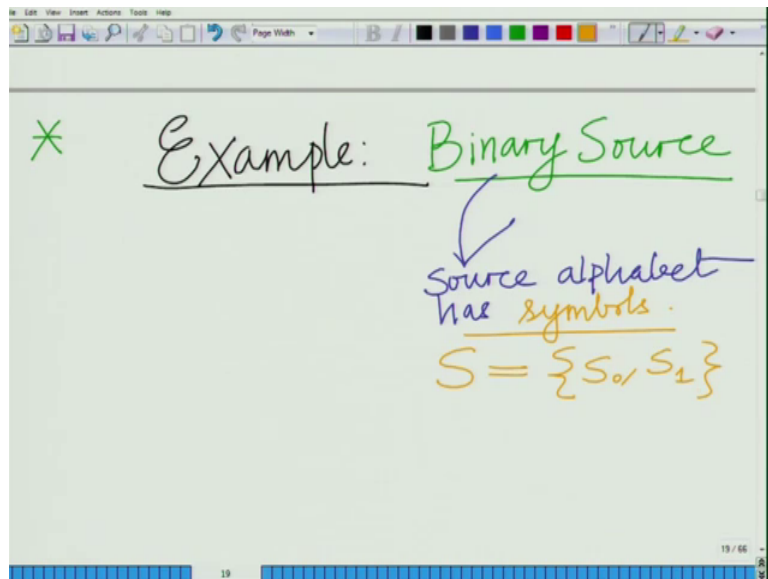 Edit View Insert Actions Tools Help
Page Width
B I
* Example: Binary Source
Source alphabet
has symbols.
S = {S₀, S₁}
19 / 66
19